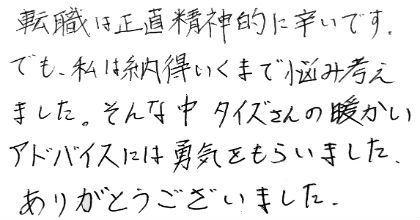 転職は正直精神的に辛いです。
でも、私は納得いくまで悩み考え
ました。そんな中 タイズさんの暖かい
アドバイスには勇気をもらいました。
ありがとうございました。